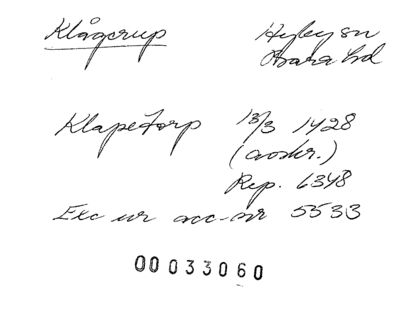 Klågerup Hyby sn
Bara hd
Klapetorp 13/3 1428
(avskr.)
Rep. 6348
Exc ur acc-nr 5533
00033060